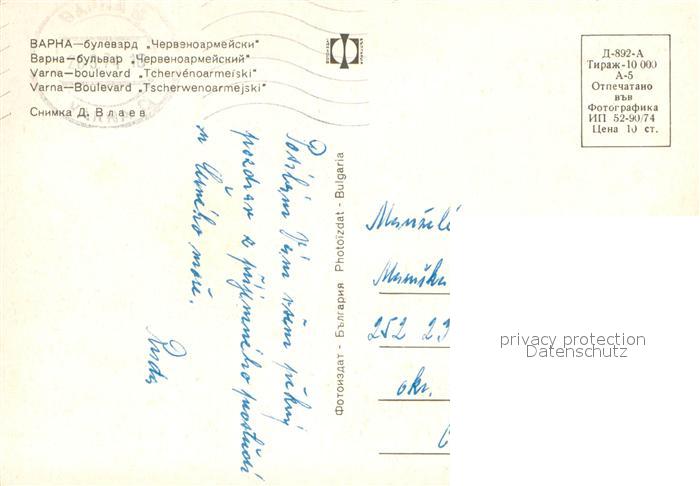 ВАРНА—булевард „Червеноармейски“
Варна—бульвар „Червеноармейский“
Varna—boulevard „Tchervénoarmeïski“
Varna—Boulevard „Tscherwenoarmejski“
Снимка Д. Влаев
Д-892-А
Тираж-10 000
А-5
Отпечатано
във
Фотографика
ИП 52-90/74
Цена 10 ст.
Фотоиздат - България Photoizdat - Bulgaria
Posílám Vám všem pěkný
pozdrav z příjemného prostředí
u Černého moře.
Manželé
252 23
okr.
privacy protection
Datenschutz